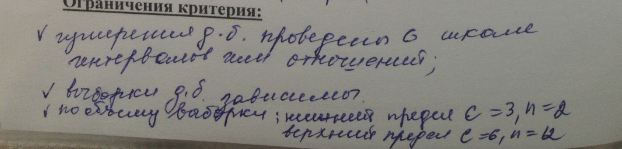 Ограничения критерия:
✓ измерения д.б. проведены в шкале
интервалов или отношений;
✓ выборки д.б. зависимы.
✓ по объему выборки; нижний предел c=3, n=2
верхний предел c=6, n=12